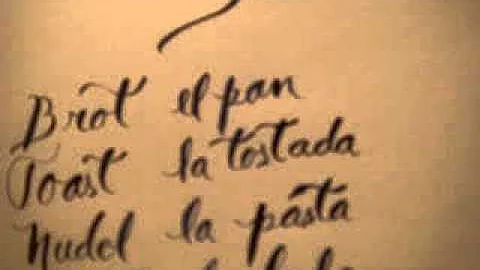 Brot el pan
Toast la tostada
Nudel la pasta